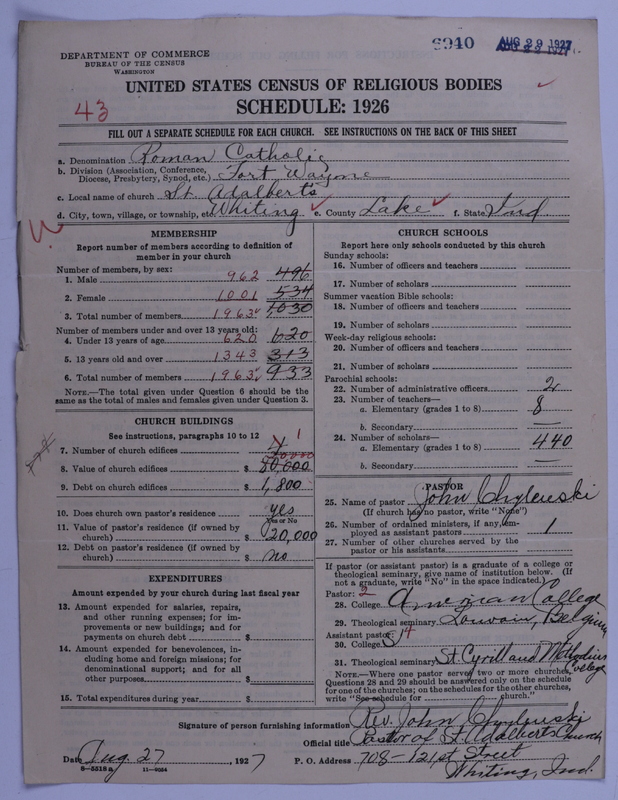 6940
AUG 29 1927
DEPARTMENT OF COMMERCE
BUREAU OF THE CENSUS
WASHINGTON
UNITED STATES CENSUS OF RELIGIOUS BODIES
SCHEDULE: 1926
43
FILL OUT A SEPARATE SCHEDULE FOR EACH CHURCH. SEE INSTRUCTIONS ON THE BACK OF THIS SHEET
a. Denomination Roman Catholic
b. Division (Association, Conference, Diocese, Presbytery, Synod, etc.) Fort Wayne
c. Local name of church St. Adalberts
d. City, town, village, or township, etc. Whiting e. County Lake f. State Ind
MEMBERSHIP
Report number of members according to definition of
member in your church
Number of members, by sex:
1. Male 962 496
2. Female 1001 534
3. Total number of members 1963 1,030
Number of members under and over 13 years old:
4. Under 13 years of age 620 620
5. 13 years old and over 1343 313
6. Total number of members 1963 933
NOTE.—The total given under Question 6 should be the
same as the total of males and females given under Question 3.
CHURCH BUILDINGS
See instructions, paragraphs 10 to 12
7. Number of church edifices 1
8. Value of church edifices $ 80,000
9. Debt on church edifices $ 1,800
10. Does church own pastor's residence yes
Yes or No
11. Value of pastor's residence (if owned by
church) $ 20,000
12. Debt on pastor's residence (if owned by
church) $ no
EXPENDITURES
Amount expended by your church during last fiscal year
13. Amount expended for salaries, repairs,
and other running expenses; for im-
provements or new buildings; and for
payments on church debt $
14. Amount expended for benevolences, in-
cluding home and foreign missions; for
denominational support; and for all
other purposes $
15. Total expenditures during year $
CHURCH SCHOOLS
Report here only schools conducted by this church
Sunday schools:
16. Number of officers and teachers
17. Number of scholars
Summer vacation Bible schools:
18. Number of officers and teachers
19. Number of scholars
Week-day religious schools:
20. Number of officers and teachers
21. Number of scholars
Parochial schools:
22. Number of administrative officers 2
23. Number of teachers—
a. Elementary (grades 1 to 8) 8
b. Secondary —
24. Number of scholars—
a. Elementary (grades 1 to 8) 440
b. Secondary —
PASTOR
25. Name of pastor John Chylewski
(If church has no pastor, write "None")
26. Number of ordained ministers, if any, em-
ployed as assistant pastors 1
27. Number of other churches served by the
pastor or his assistants
If pastor (or assistant pastor) is a graduate of a college or
theological seminary, give name of institution below. (If
not a graduate, write "No" in the space indicated.)
Pastor: 2
28. College American College
29. Theological seminary Louvain, Belgium
Assistant pastor: 14
30. College
31. Theological seminary St. Cyrill and Methodius College
NOTE.—Where one pastor served two or more churches,
Questions 28 and 29 should be answered only on the schedule
for one of the churches; on the schedules for the other churches,
write "See schedule for church."
Signature of person furnishing information Rev. John Chylewski
Official title Pastor of St. Adalberts Church
Date Aug. 27 1927 P. O. Address 708-121st Street
8-5518a 11-9034 Whiting, Ind.